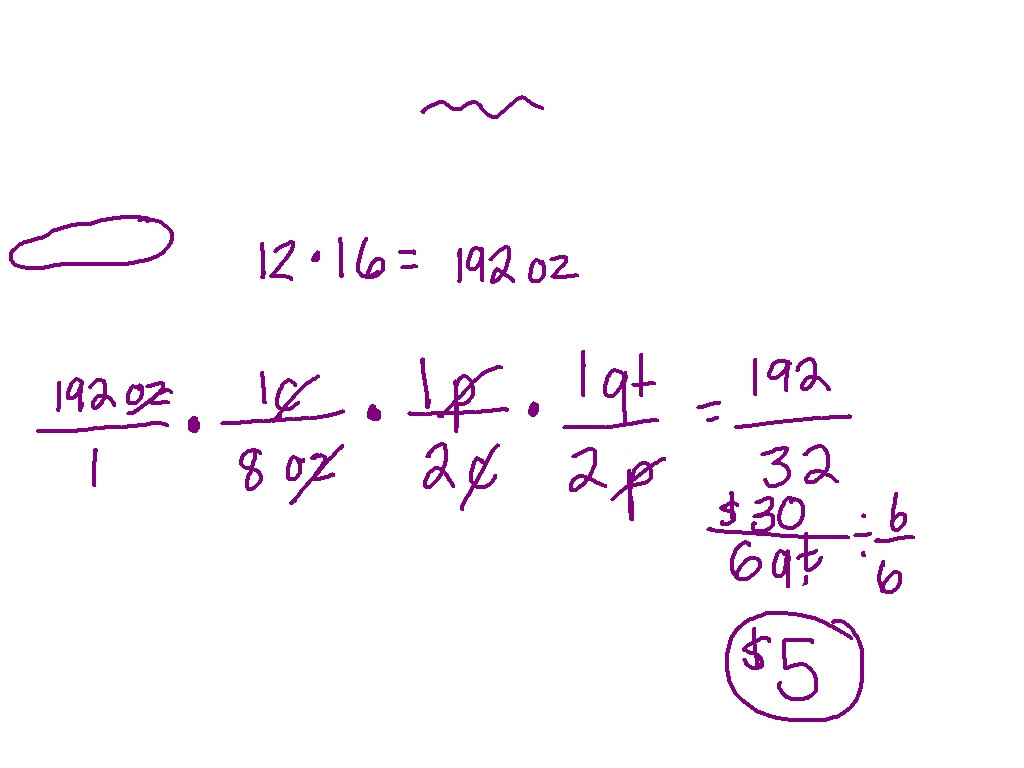 12 · 16 = 192 oz
192 oz/1 · 1c/8 oz · 1p/2c · 1qt/2p = 192/32
$30/6qt ÷ 6/6
$5